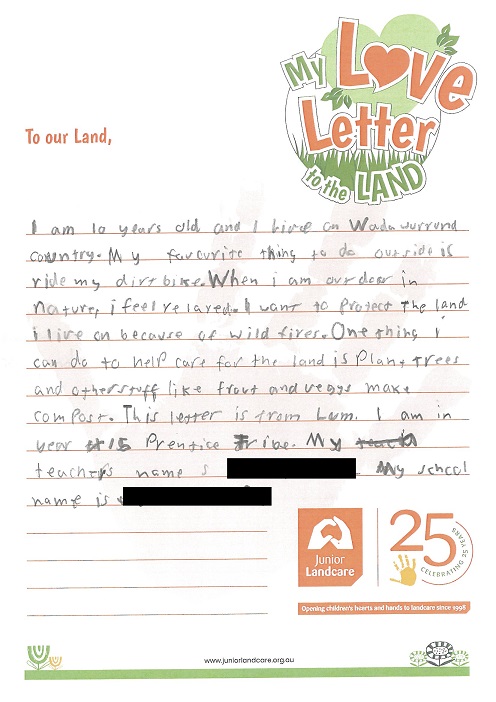 My Love
Letter
to the LAND
To our Land,
I am 10 years old and I live on Wadawurrund
country. My favourite thing to do outside is
ride my dirt bike. When i am outdoor in
nature, i feel relaxed. I want to protect the land
i live on because of wild fires. One thing i
can do to help care for the land is Plant trees
and other stuff like frout and veggs make
comPost. This letter is from Lum. I am in
year 5 Prentice Tribe. My
teachers name s My school
name is
Junior
Landcare
25
CELEBRATING 25 YEARS
Opening children's hearts and hands to landcare since 1998
www.juniorlandcare.org.au